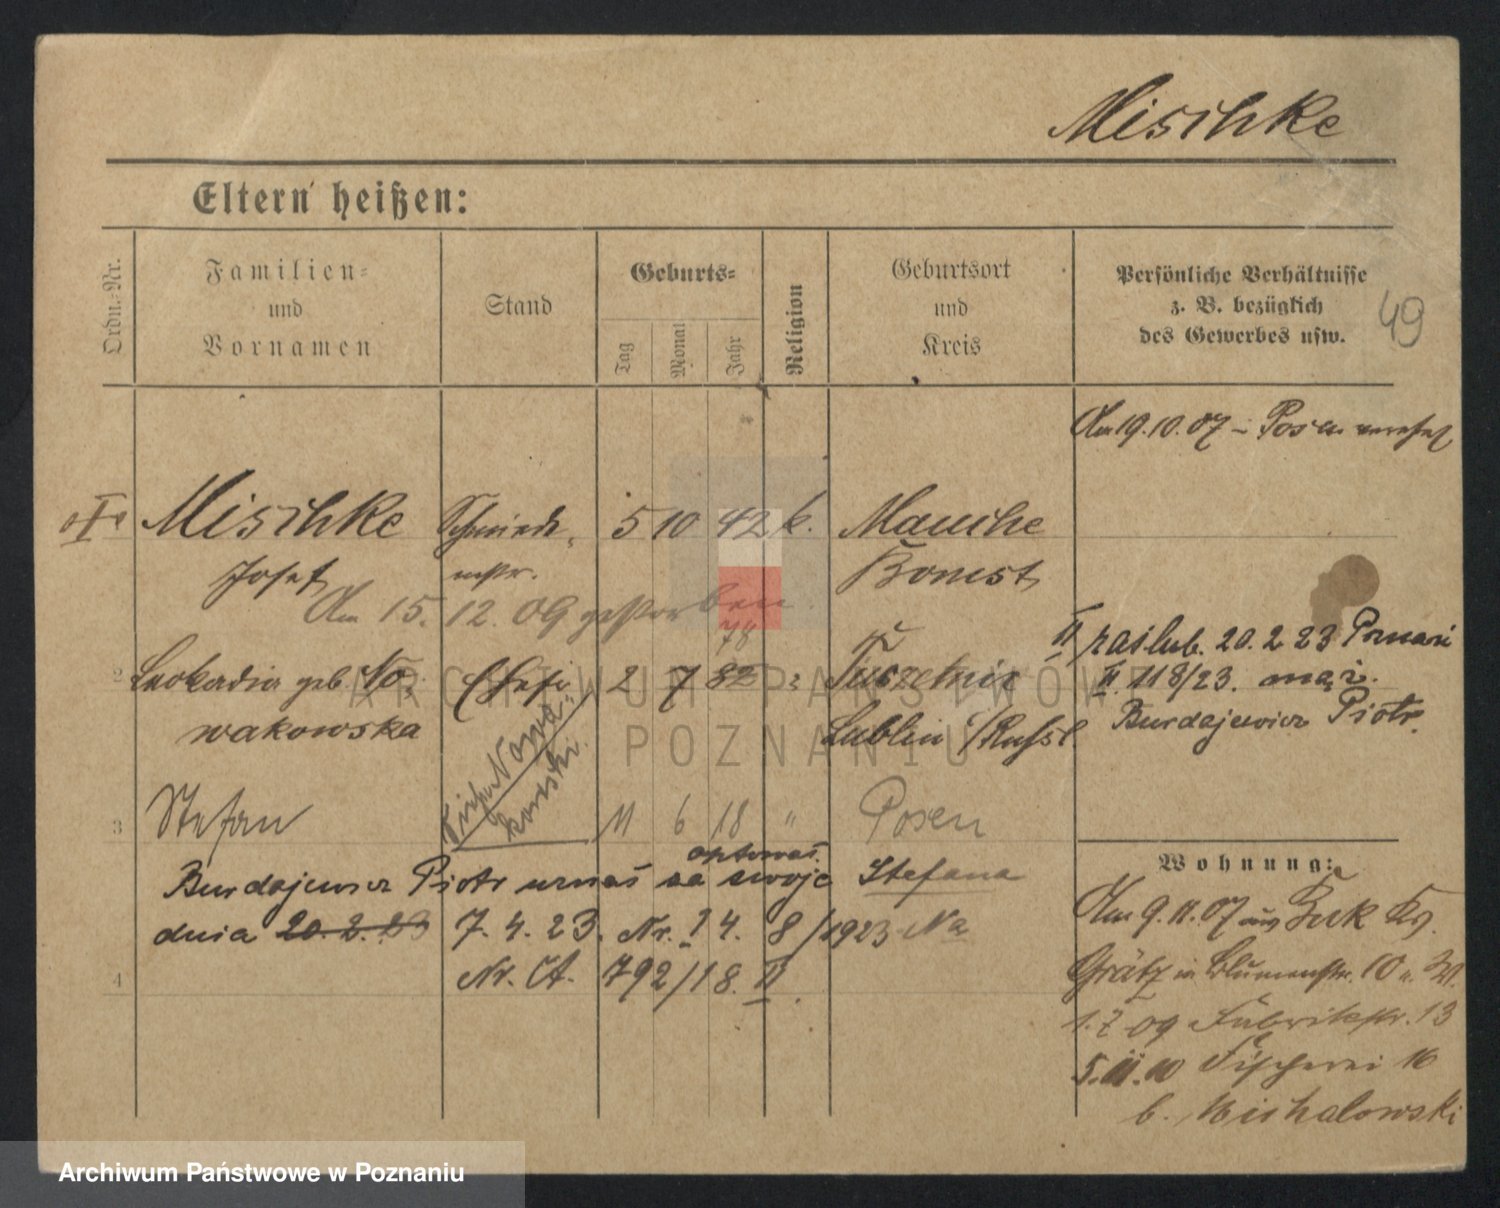 Mischke
Eltern heißen:
Ordn.-Nr.
Familien-
und
Vornamen
Stand
Geburts-
Tag
Monat
Jahr
Religion
Geburtsort
und
Kreis
Persönliche Verhältnisse
z. B. bezüglich
des Gewerbes usw.
49
Am 19.10.07 Posen
I Mischke Schmiede- 5 10 42 k. Mauche
Josef mstr. Bomst
Am 15. 12. 09 gestorben
78
2 Leokadia geb. No- Ehefr 2 7 82 Tuszetnir
wakowska Lublin /Russl.
II zaślub. 20. 2 23 Poznań
II. 118/23. mąż.
Burdajewicz Piotr.
Nowa-
kowski
3 Stefan 11 6 18 " Posen
optował
Burdajewicz Piotr uznał za swoje Stefana
dnia 20. 2. 23 7. 4. 23. Nr. 8/1923 Na
4 Nr. Ct. 792/18. II.
Wohnung:
Am 9.11.07 aus Buk Kr.
Grätz in Blumenstr. 10
1.7 09 Fabrikstr. 13
5.11.10 Fischerei 16
b. Michalowski
ARCHIWUM PAŃSTWOWE
POZNANIU
Archiwum Państwowe w Poznaniu